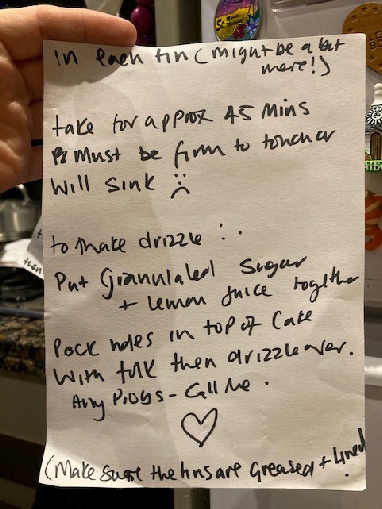 in each tin (might be a bit
more!)
take for approx 45 mins
Must be firm to touch or
will sink ☹
to make drizzle :
Put Granulated Sugar
+ lemon juice together
Pock holes in top of Cake
with fork then drizzle over.
Any Probs - Call Me.
♡
(Make sure the tins are Greased + Lined